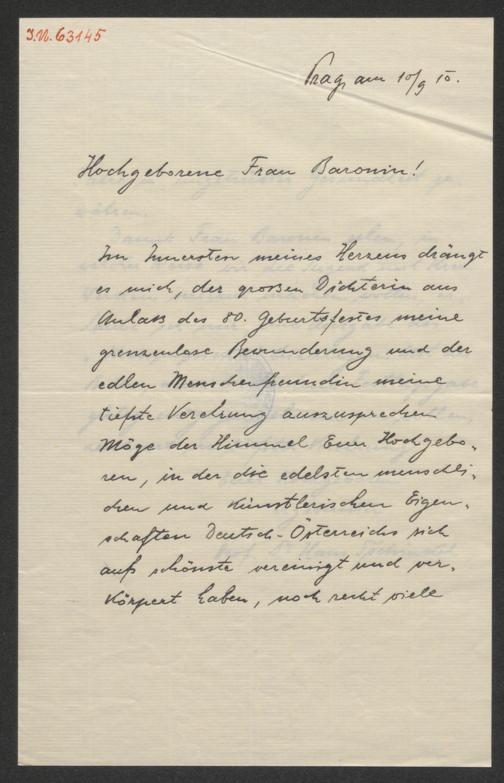 J.N. 63145
Prag, am 10/9 10.
Hochgeborene Frau Baronin!
Im Innersten meines Herzens drängt
es mich, der großen Dichterin aus
Anlaß des 80. Geburtsfestes meine
grenzenlose Bewunderung und der
edlen Menschenfreundin meine
tiefste Verehrung auszusprechen
Möge der Himmel Euer Hochgebo-
ren, in der die edelsten menschli-
chen und künstlerischen Eigen-
schaften Deutsch-Österreichs sich
aufs schönste vereinigt und ver-
körpert haben, noch recht viele